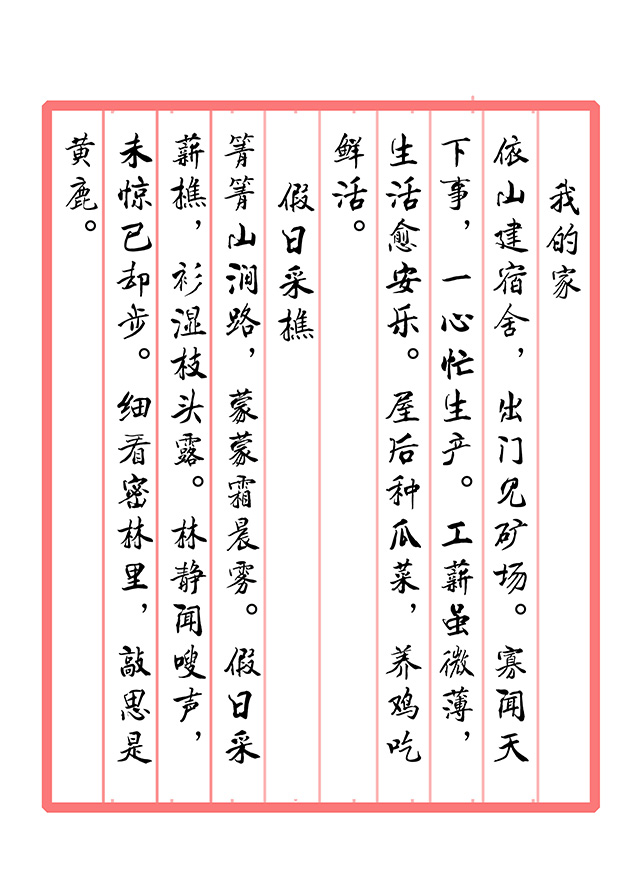 我的家
依山建宿舍，出门见矿场。寡闻天
下事，一心忙生产。工薪虽微薄，
生活愈安乐。屋后种瓜菜，养鸡吃
鲜活。
假日采樵
箐箐山涧路，蒙蒙霜晨雾。假日采
薪樵，衫湿枝头露。林静闻嗖声，
未惊已却步。细看密林里，敲思是
黄鹿。